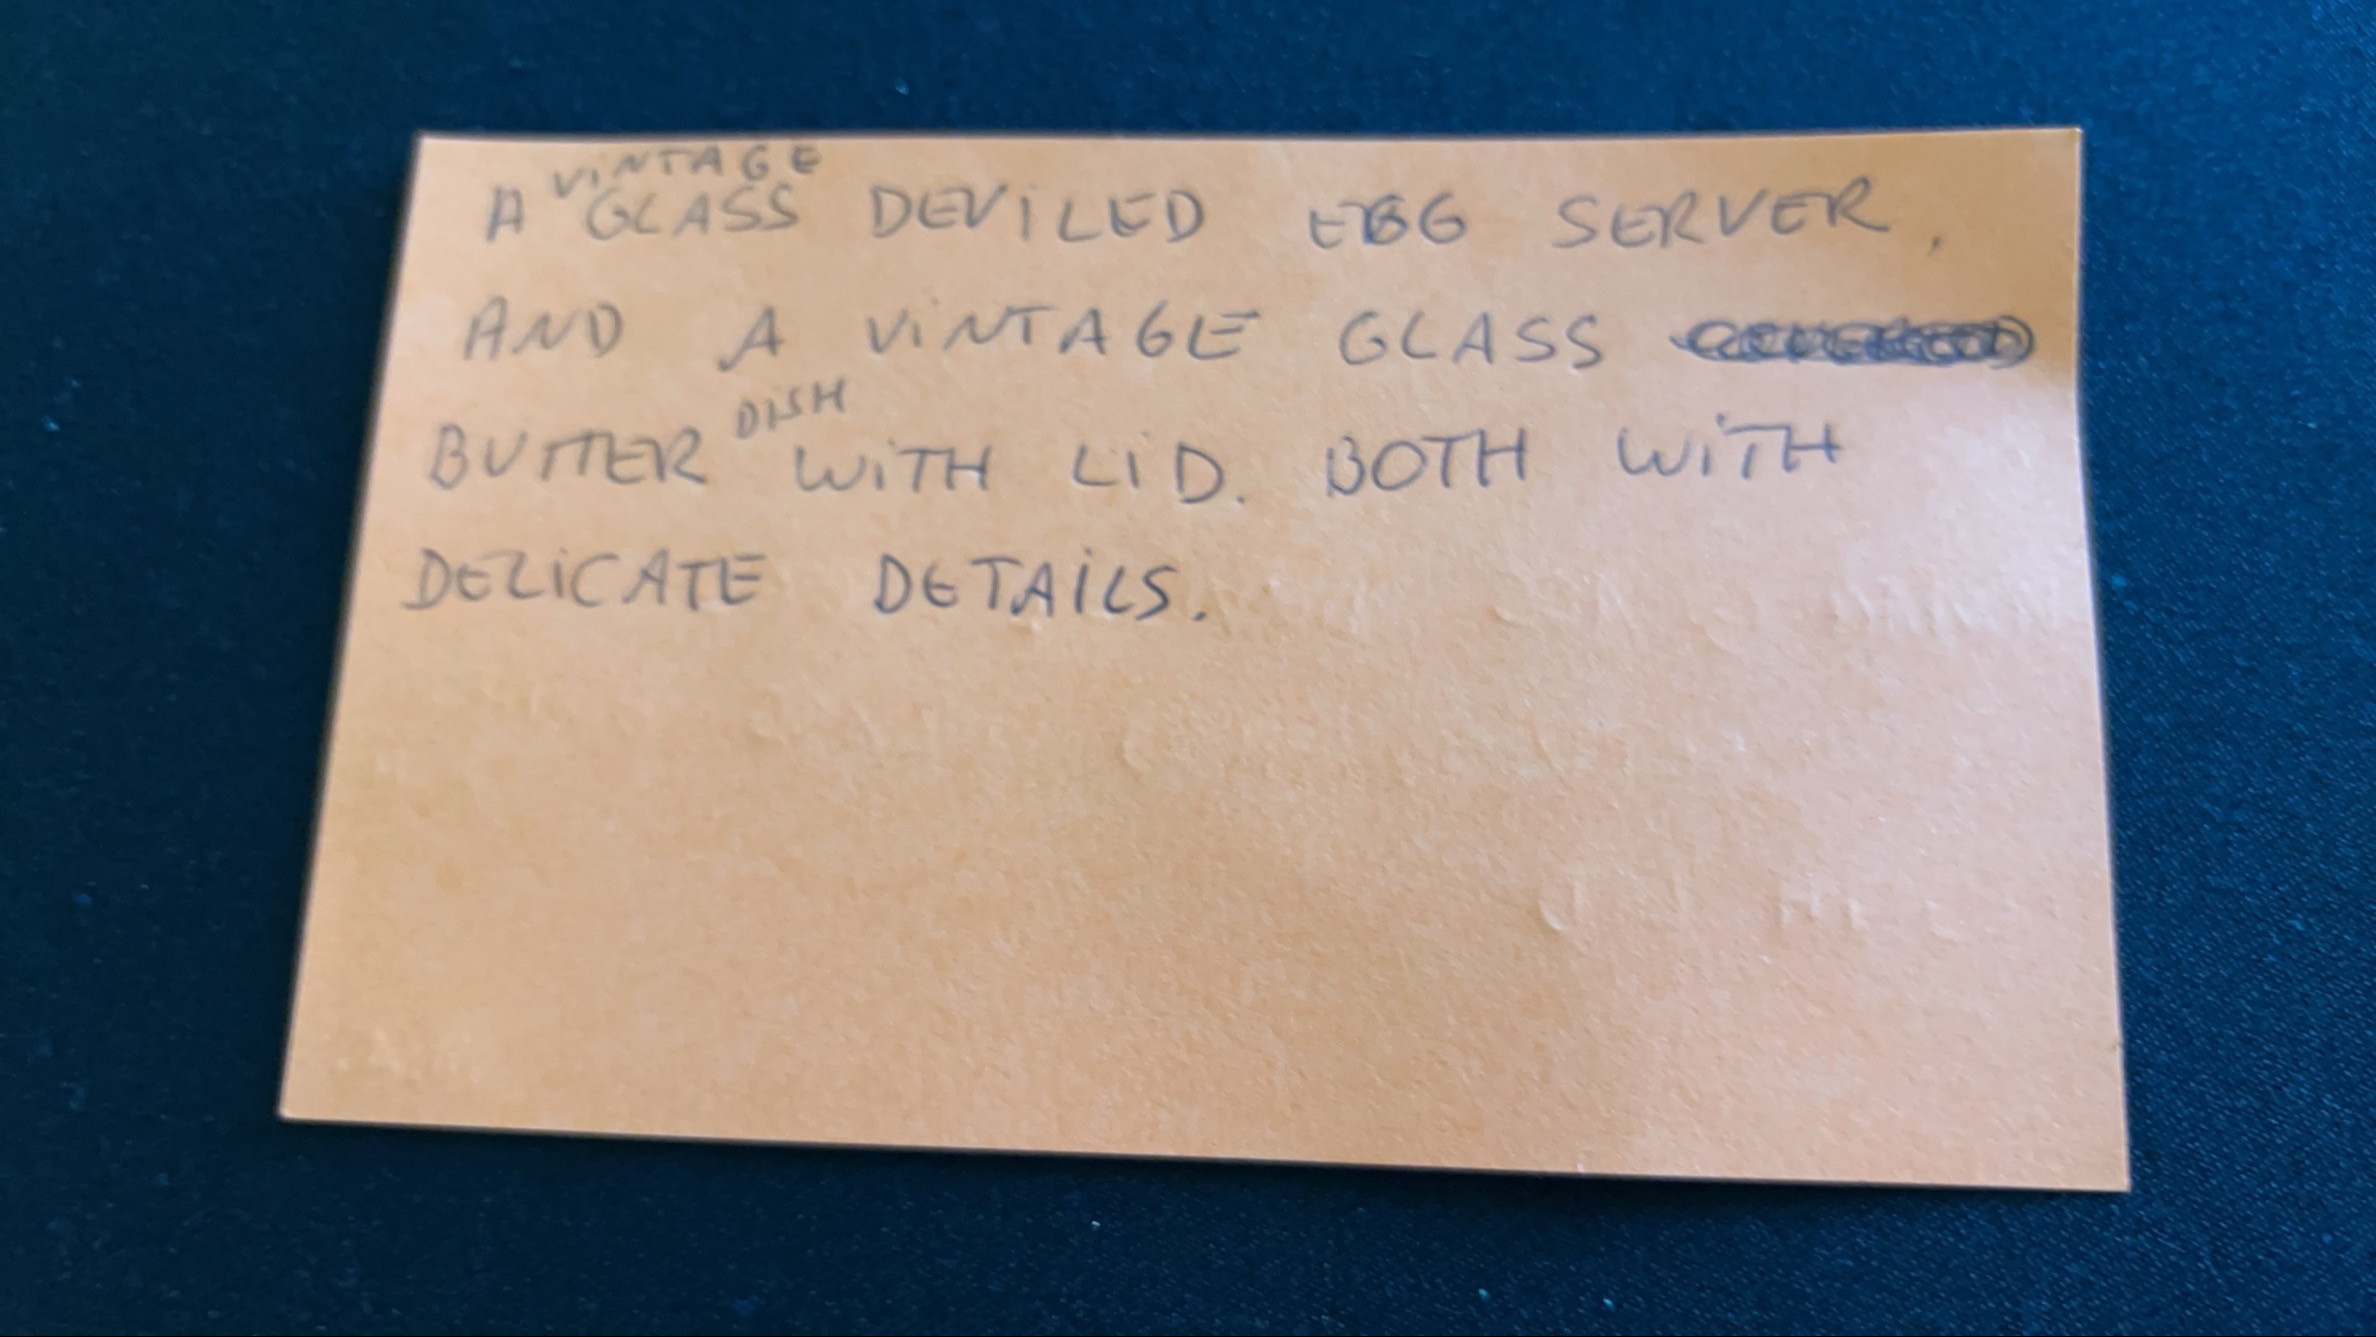 A VINTAGE GLASS DEVILED EGG SERVER,
AND A VINTAGE GLASS
BUTTER DISH WITH LID. BOTH WITH
DELICATE DETAILS.